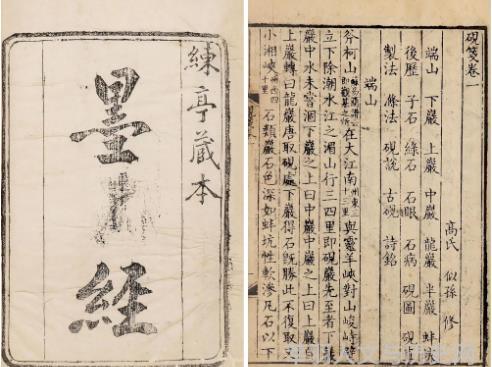 練亭藏本
墨經
硯箋卷一
高氏 似孫 修
端山 下巖 上巖 中巖 龍巖 半巖 蚌坑
後歷 子石 綠石 石眼 石病 硯圖 硯
製法 滌法 硯說 古硯 詩銘
端山
斧柯山在大江南州東三十三里與靈羊峽對山峻峙壁
立下際潮水江之湄山行三四里即硯巖先至者下巖
巖中水未嘗涸下巖之上曰中巖中巖之上曰上巖自
上巖轉曰龍巖唐取硯處下巖得石既勝此不復取又
小湘峽州西四十里石類巖石色深如蚌坑性軟滲凡石以下